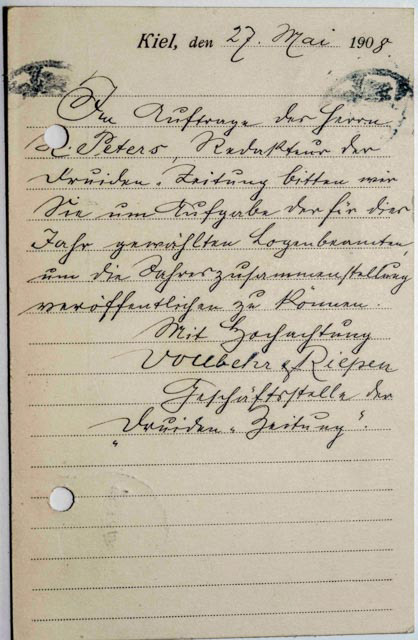 Kiel, den 27. Mai 1908
Im Auftrage des Herrn
K. Peters, Redakteur der
Druiden-Zeitung bitten wir
Sie um Aufgabe der für dies
Jahr gewählten Logenbeamten,
um die Jahreszusammenstellung
veröffentlichen zu können.
Mit Hochachtung
Vollbehr & Riepen
Geschäftsstelle der
„Druiden-Zeitung".